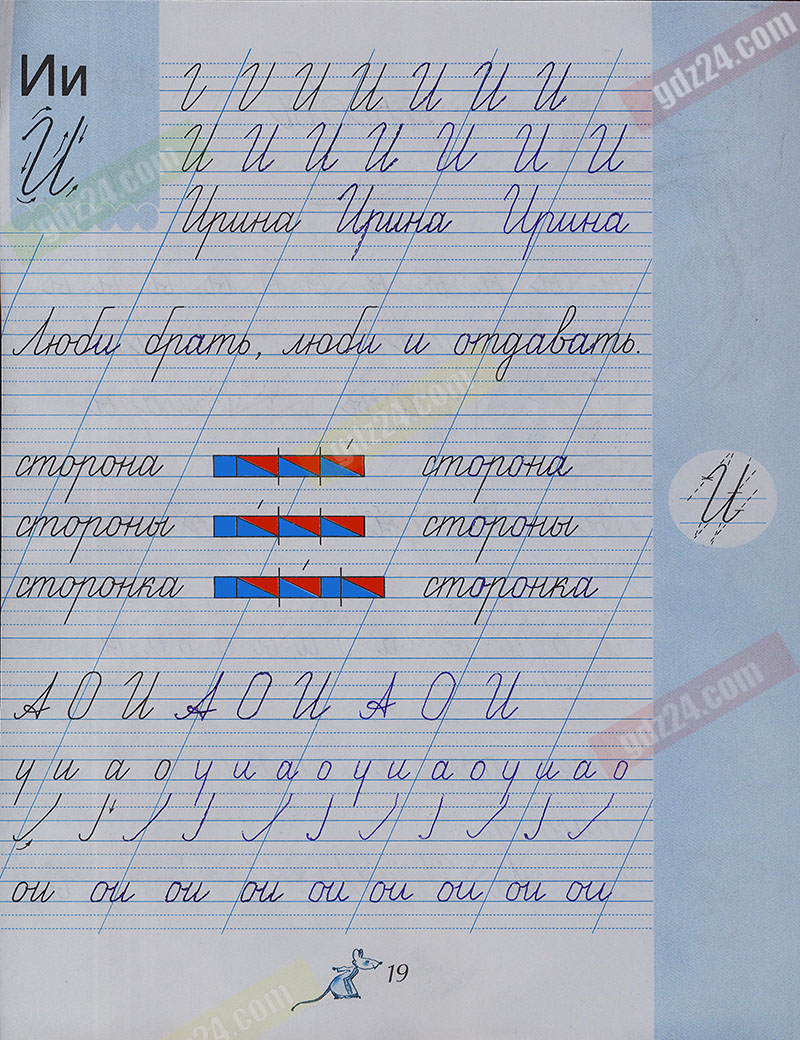 Ии
И И И И И
И
И И И И И И И
Ирина Ирина Ирина
gdz24.com
gdz24.com
Люби брать, люби и отдавать.
gdz24.com
сторона сторона
И
стороны стороны
сторонка сторонка
А О И А О И А О И
gdz24.com
у и а о у и а о у и а о у и а о
ои ои ои ои ои ои ои ои ои
19
gdz24.com